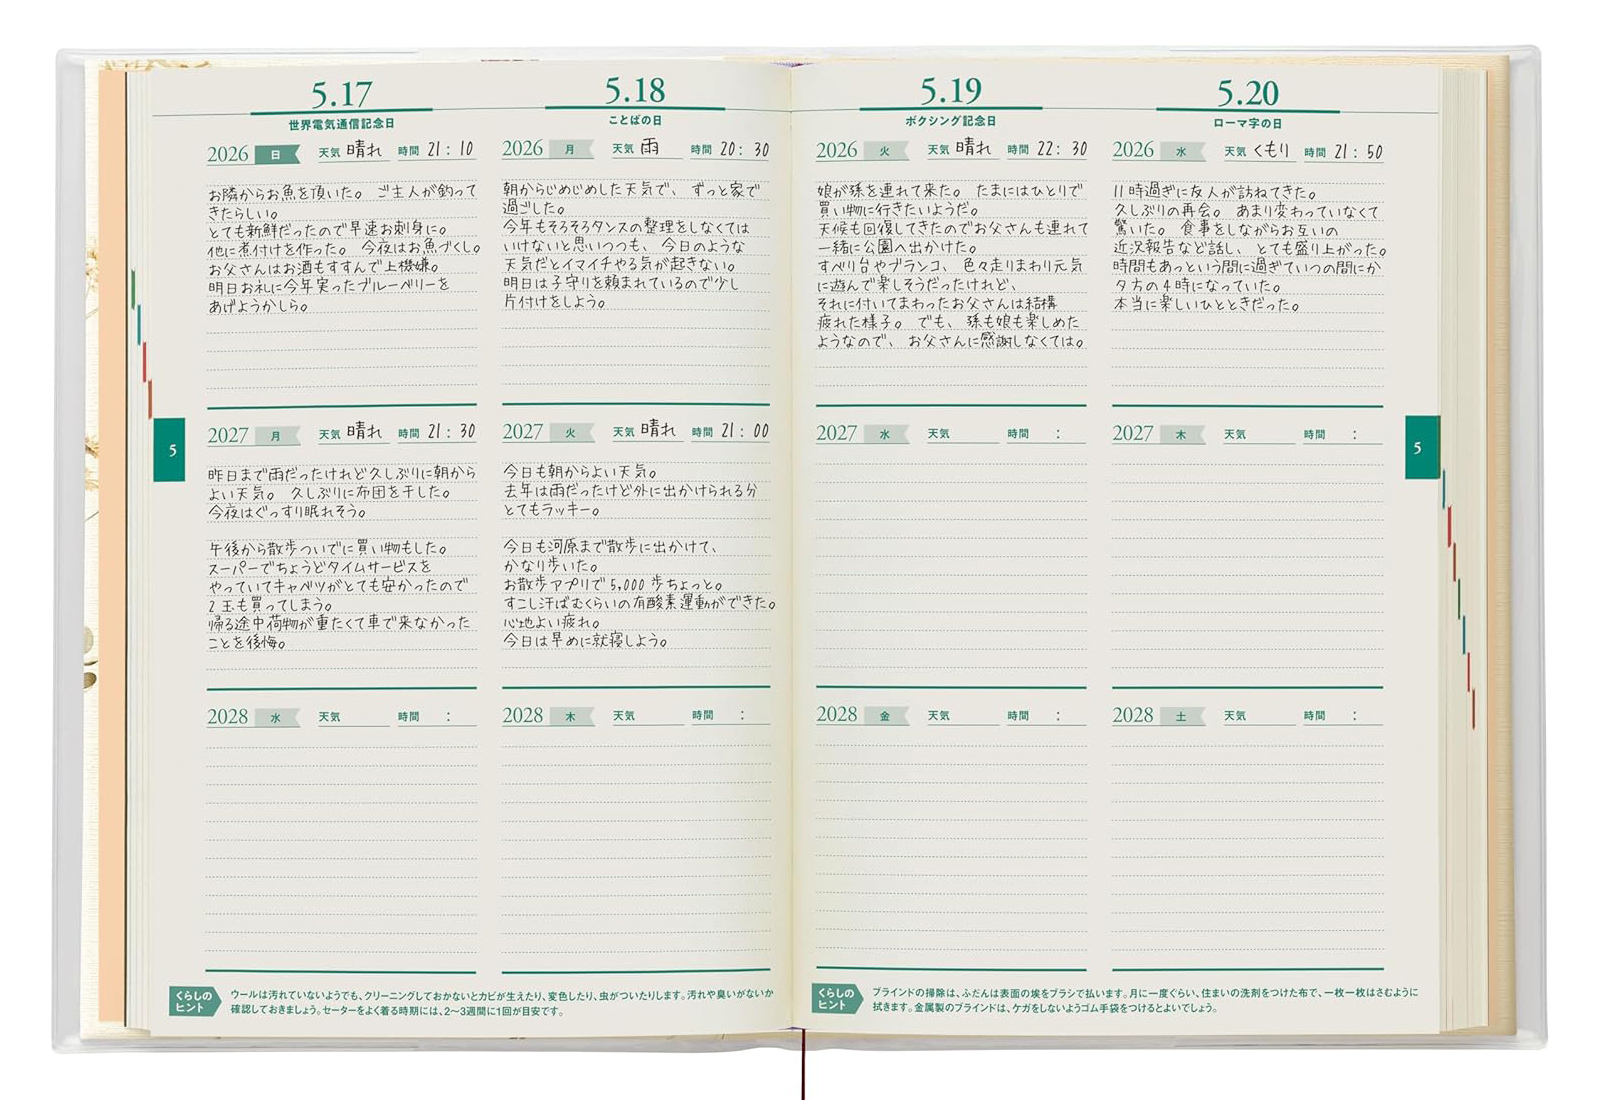 5.17
世界電気通信記念日
2026 日 天気 晴れ 時間 21:10
お隣からお魚を頂いた。 ご主人が釣って
きたらしい。
とても新鮮だったので早速お刺身に。
他に煮付けを作った。 今夜はお魚づくし。
お父さんはお酒もすすんで上機嫌。
明日お礼に今年実ったブルーベリーを
あげようかしら。
2027 月 天気 晴れ 時間 21:30
昨日まで雨だったけれど久しぶりに朝から
よい天気。 久しぶりに布団を干した。
今夜はぐっすり眠れそう。
午後から散歩ついでに買い物もした。
スーパーでちょうどタイムサービスを
やっていてキャベツがとても安かったので
2玉も買ってしまう。
帰る途中荷物が重たくて車で来なかった
ことを後悔。
2028 水 天気 時間 :
5.18
ことばの日
2026 月 天気 雨 時間 20:30
朝からじめじめした天気で、 ずっと家で
過ごした。
今年もそろそろタンスの整理をしなくては
いけないと思いつつも、 今日のような
天気だとイマイチやる気が起きない。
明日は子守りを頼まれているので少し
片付けをしよう。
2027 火 天気 晴れ 時間 21:00
今日も朝からよい天気。
去年は雨だったけど外に出かけられる分
とてもラッキー。
今日も河原まで散歩に出かけて、
かなり歩いた。
お散歩アプリで5,000歩ちょっと。
すこし汗ばむくらいの有酸素運動ができた。
心地よい疲れ。
今日は早めに就寝しよう。
2028 木 天気 時間 :
5
くらしの
ヒント
ウールは汚れていないようでも、クリーニングしておかないとカビが生えたり、変色したり、虫がついたりします。汚れや臭いがないか
確認しておきましょう。セーターをよく着る時期には、2〜3週間に1回が目安です。
5.19
ボクシング記念日
2026 火 天気 晴れ 時間 22:30
娘が孫を連れて来た。 たまにはひとりで
買い物に行きたいようだ。
天候も回復してきたのでお父さんも連れて
一緒に公園へ出かけた。
すべり台やブランコ、 色々走りまわり元気
に遊んで楽しそうだったけれど、
それに付いてまわったお父さんは結構
疲れた様子。 でも、 孫も娘も楽しめた
ようなので、 お父さんに感謝しなくては。
2027 水 天気 時間 :
2028 金 天気 時間 :
5.20
ローマ字の日
2026 水 天気 くもり 時間 21:50
11時過ぎに友人が訪ねてきた。
久しぶりの再会。 あまり変わっていなくて
驚いた。 食事をしながらお互いの
近況報告など話し、とても盛り上がった。
時間もあっという間に過ぎていつの間にか
夕方の4時になっていた。
本当に楽しいひとときだった。
2027 木 天気 時間 :
2028 土 天気 時間 :
5
くらしの
ヒント
ブラインドの掃除は、ふだんは表面の埃をブラシで払います。月に一度ぐらい、住まいの洗剤をつけた布で、一枚一枚はさむように
拭きます。金属製のブラインドは、ケガをしないようゴム手袋をつけるとよいでしょう。